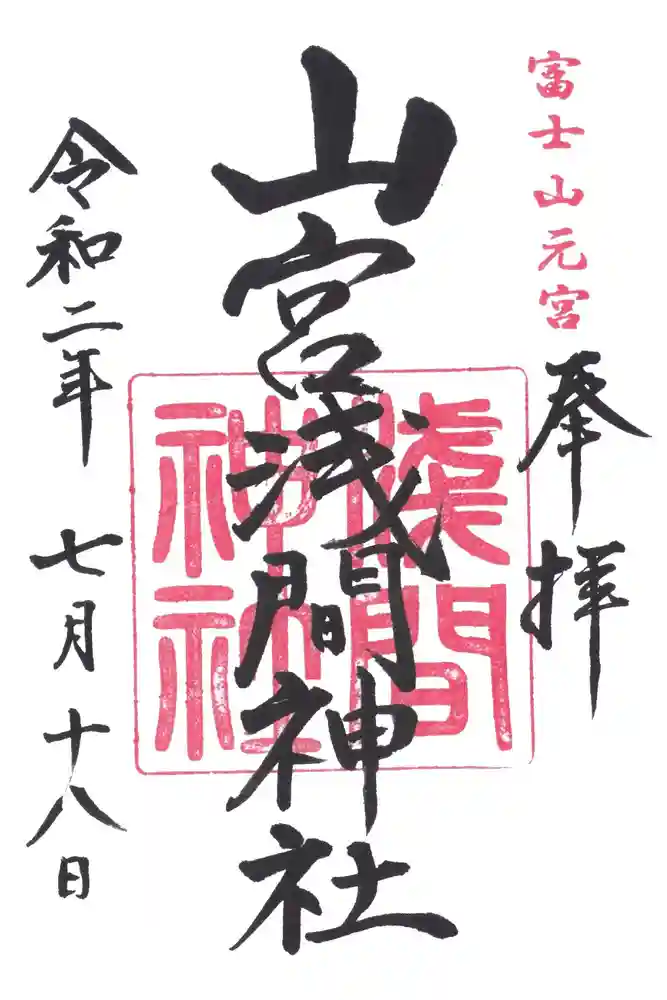 富士山元宮
奉拝
山宮浅間神社
浅間
神社
令和二年 七月十八日